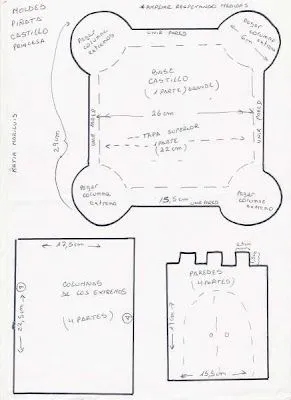 MOLDES
PIÑATA
CASTILLO
PRINCESA
* AMPLIAR RESPETANDO MEDIDAS
UNIR PARED
Pegar
columna
extremo
BASE
CASTILLO
(1 PARTE) GRANDE
26 cm
TAPA SUPERIOR
1 PARTE
(22 cm)
29 cm
UNIR PARED
UNIR PARED
KATIA MARCLUIS
Pegar
columna
extremo
15,5 cm
UNIR PARED
Pegar
columna
extremo
17,5 cm
COLUMNAS
DE LOS EXTREMOS
(4 PARTES)
22,5 cm
PAREDES
(4 PARTES)
15,5 cm